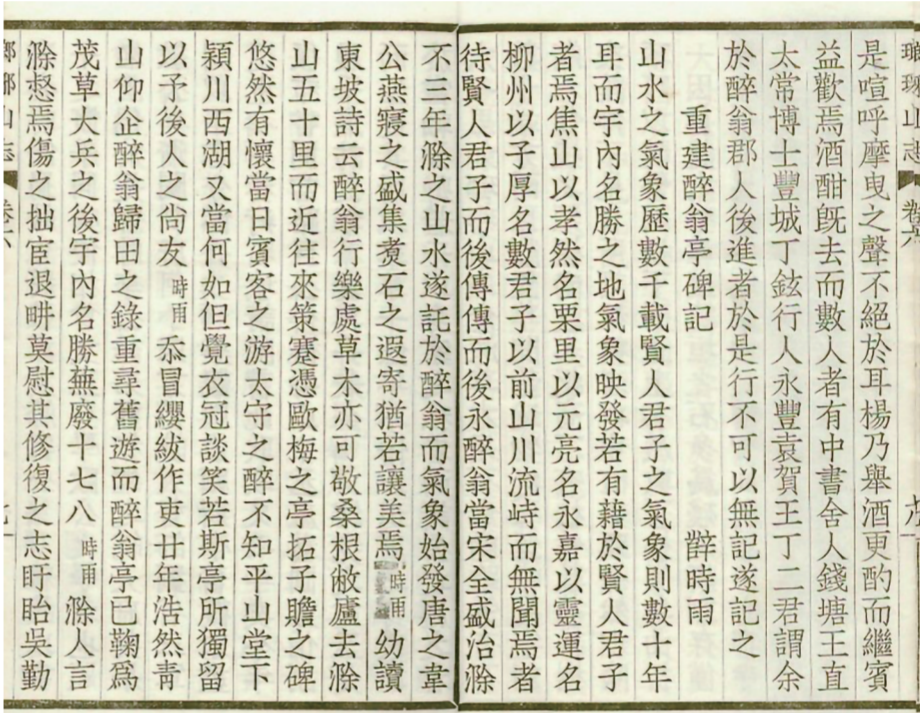 瑯琊山志 卷六
是喧呼摩曳之聲不絕於耳楊乃舉酒更酌而繼賓
益歡焉酒酣旣去而數人者有中書舍人錢塘王直
太常博士豐城丁鉉行人永豐袁賀王丁二君謂余
於醉翁郡人後進者於是行不可以無記遂記之
重建醉翁亭碑記 辥時雨
山水之氣象歷數千載賢人君子之氣象則數十年
耳而宇內名勝之地氣象映發若有藉於賢人君子
者焉焦山以孝然名栗里以元亮名永嘉以靈運名
柳州以子厚名數君子以前山川流峙而無聞焉者
待賢人君子而後傳傳而後永醉翁當宋全盛治滁
不三年滁之山水遂託於醉翁而氣象始發唐之韋
公燕寢之盛集煑石之遐寄猶若讓美焉時雨幼讀
東坡詩云醉翁行樂處草木亦可敬桑根敝廬去滁
山五十里而近往來策蹇憑歐梅之亭拓子瞻之碑
悠然有懷當日賓客之游太守之醉不知平山堂下
潁川西湖又當何如但覺衣冠談笑若斯亭所獨留
以予後人之尙友時雨忝冒纓紱作吏廿年浩然靑
山仰企醉翁歸田之錄重尋舊遊而醉翁亭已鞠爲
茂草大兵之後宇內名勝蕪廢十七八時雨滁人言
滁惄焉傷之拙宦退畊莫慰其修復之志盱眙吳勤